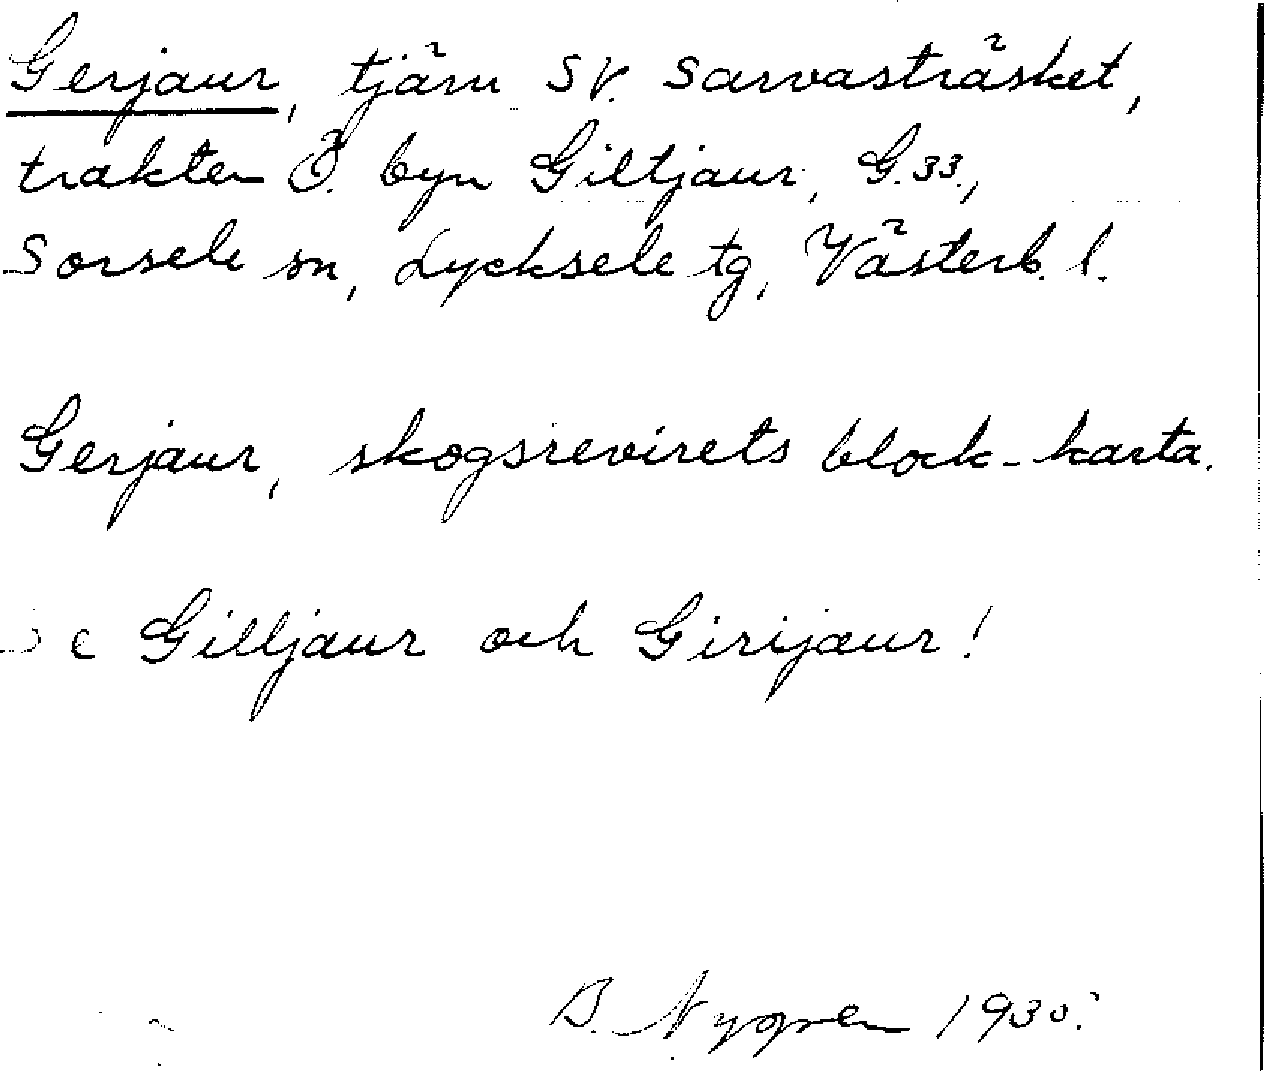 Gerjaur, tjärn SV. Sarvasträsket,
trakten Ö. byn Giltjaur, G.33.,
Sorsele sn, Lycksele tg, Västerb. l.
Gerjaur, skogsrevirets block-karta.
Se Gilljaur och Girijaur!
B. Nygren 1930.